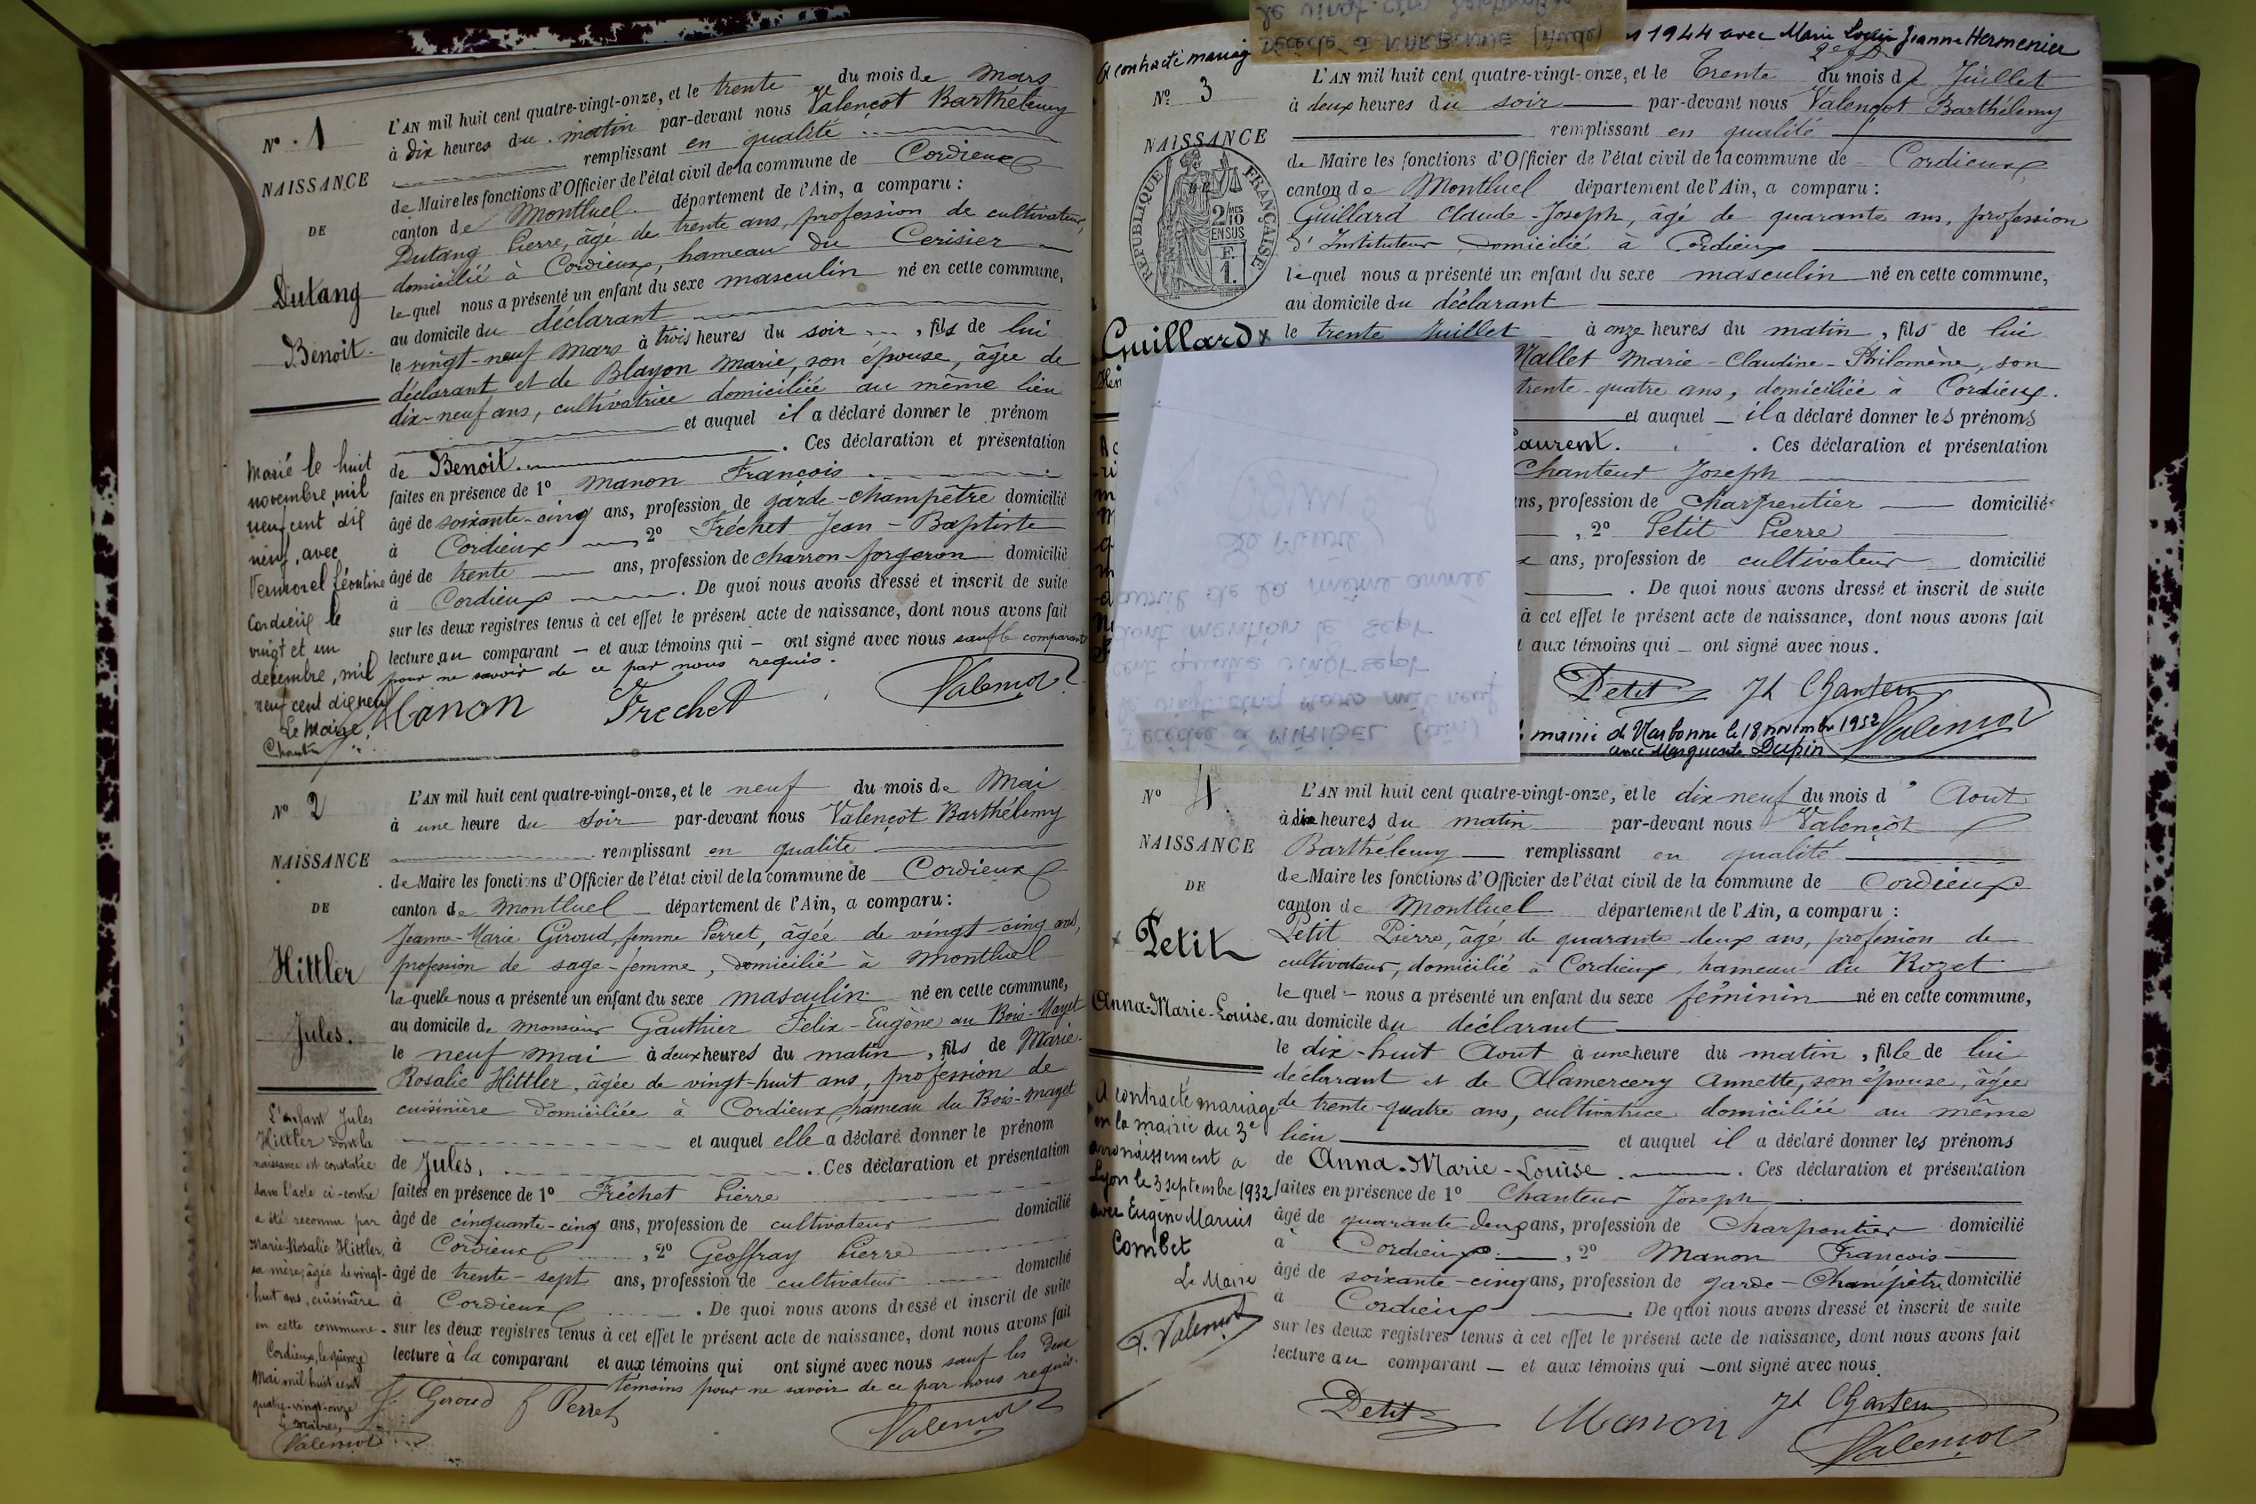 Nº 1
NAISSANCE
DE
Dutang
Benoit
Marié le huit
novembre mil
neuf cent dix
neuf, avec
Vermorel Léontine
Cordieux le
vingt et un
décembre, mil
neuf cent dix neuf
Le Maire,
L'AN mil huit cent quatre-vingt-onze, et le trente du mois de Mars
à dix heures du matin par-devant nous Valençot Barthélemy
remplissant en qualité
de Maire les fonctions d'Officier de l'état civil de la commune de Cordieux
canton de Montluel département de l'Ain, a comparu :
Dutang Pierre, âgé de trente ans, profession de cultivateur,
domicilié à Cordieux, hameau du Cerisier
lequel nous a présenté un enfant du sexe masculin né en cette commune,
au domicile du déclarant
le vingt-neuf Mars à trois heures du soir, fils de lui
déclarant et de Blayon Marie, son épouse, âgée de
dix-neuf ans, cultivatrice domiciliée au même lieu
et auquel il a déclaré donner le prénom
de Benoit. Ces déclaration et présentation
faites en présence de 1º Manon François
âgé de soixante-cinq ans, profession de garde-champêtre domicilié
à Cordieux 2º Fréchet Jean-Baptiste
âgé de trente ans, profession de charron-forgeron domicilié
à Cordieux. De quoi nous avons dressé et inscrit de suite
sur les deux registres tenus à cet effet le présent acte de naissance, dont nous avons fait
lecture au comparant et aux témoins qui ont signé avec nous sauf le comparant
pour ne savoir de ce par nous requis.
Manon Frechet Valençot
Nº 2
NAISSANCE
DE
Hittler
Jules.
L'enfant Jules
Hittler dont la
naissance est constatée
dans l'acte ci-contre
a été reconnu par
Marie-Rosalie Hittler,
sa mère, âgée de vingt-
huit ans, cuisinière
en cette commune.
Cordieux, le quinze
Mai mil huit cent
quatre-vingt-onze
Le Maire,
Valençot
L'AN mil huit cent quatre-vingt-onze, et le neuf du mois de Mai
à une heure du soir par-devant nous Valençot Barthélemy
remplissant en qualité
de Maire les fonctions d'Officier de l'état civil de la commune de Cordieux
canton de Montluel département de l'Ain, a comparu :
Jeanne-Marie Giroud, femme Perret, âgée de vingt-cinq ans,
profession de sage-femme, domicilié à Montluel
laquelle nous a présenté un enfant du sexe masculin né en cette commune,
au domicile de Monsieur Gauthier Félix-Eugène au Bois-Mayet
le neuf Mai à deux heures du matin, fils de Marie-
Rosalie Hittler, âgée de vingt-huit ans, profession de
cuisinière domiciliée à Cordieux, hameau du Bois-Mayet
et auquel elle a déclaré donner le prénom
de Jules. Ces déclaration et présentation
faites en présence de 1º Fréchet Pierre
âgé de cinquante-cinq ans, profession de cultivateur domicilié
à Cordieux, 2º Geoffray Pierre
âgé de trente-sept ans, profession de cultivateur domicilié
à Cordieux. De quoi nous avons dressé et inscrit de suite
sur les deux registres tenus à cet effet le présent acte de naissance, dont nous avons fait
lecture à la comparant et aux témoins qui ont signé avec nous sauf les deux
témoins pour ne savoir de ce par nous requis.
Giroud f Perret Valençot
Décédé à NARBONNE (Aude)
le vingt-cinq
A contracté mariag
1944 avec Marie Louise Jeanne Hermenier
Nº 3
NAISSANCE
RÉPUBLIQUE FRANÇAISE
2 MES
10
EN SUS
E.
1.
Guillard x
Hen
L'AN mil huit cent quatre-vingt-onze, et le Trente du mois de Juillet
à deux heures du soir par-devant nous Valençot Barthélemy
remplissant en qualité
de Maire les fonctions d'Officier de l'état civil de la commune de Cordieux
canton de Montluel département de l'Ain, a comparu :
Guillard Claude-Joseph, âgé de quarante ans, profession
d'Instituteur domicilié à Cordieux
lequel nous a présenté un enfant du sexe masculin né en cette commune,
au domicile du déclarant
le trente Juillet à onze heures du matin, fils de lui
Mallet Marie-Claudine-Philomène, son
trente-quatre ans, domiciliée à Cordieux.
et auquel il a déclaré donner les prénoms
Laurent. Ces déclaration et présentation
Chanteur Joseph
ans, profession de Charpentier domicilié
, 2º Petit Pierre
ans, profession de cultivateur domicilié
. De quoi nous avons dressé et inscrit de suite
à cet effet le présent acte de naissance, dont nous avons fait
aux témoins qui ont signé avec nous.
Petit Jh Chanteur
mairie de Narbonne le 18 novembre 1952 Valençot
avec Marguerite Dupin
Décédé à MIRIBEL (Ain)
le vingt cinq Mars mil neuf
cent quatre vingt sept
dont mention le sept
avril de la même année
Le Maire
Nº 4
NAISSANCE
DE
Petit
Anna-Marie-Louise.
A contracté mariage
en la mairie du 3e
arrondissement à
Lyon le 3 septembre 1932
avec Eugène Marius
Combet
Le Maire
Valençot
L'AN mil huit cent quatre-vingt-onze, et le dix neuf du mois d'Aout
à dix heures du matin par-devant nous Valençot
Barthélemy remplissant en qualité
de Maire les fonctions d'Officier de l'état civil de la commune de Cordieux
canton de Montluel département de l'Ain, a comparu :
Petit Pierre, âgé de quarante-deux ans, profession de
cultivateur, domicilié à Cordieux, hameau du Rozet
lequel nous a présenté un enfant du sexe féminin né en cette commune,
au domicile du déclarant
le dix-huit Aout à une heure du matin, fille de lui
déclarant et de Alamercery Annette, son épouse, âgée
de trente-quatre ans, cultivatrice domiciliée au même
lieu et auquel il a déclaré donner les prénoms
de Anna-Marie-Louise. Ces déclaration et présentation
faites en présence de 1º Chanteur Joseph
âgé de quarante-deux ans, profession de Charpentier domicilié
à Cordieux, 2º Manon François
âgé de soixante-cinq ans, profession de garde-Champêtre domicilié
à Cordieux. De quoi nous avons dressé et inscrit de suite
sur les deux registres tenus à cet effet le présent acte de naissance, dont nous avons fait
lecture au comparant et aux témoins qui ont signé avec nous.
Petit Manon Jh Chanteur
Valençot